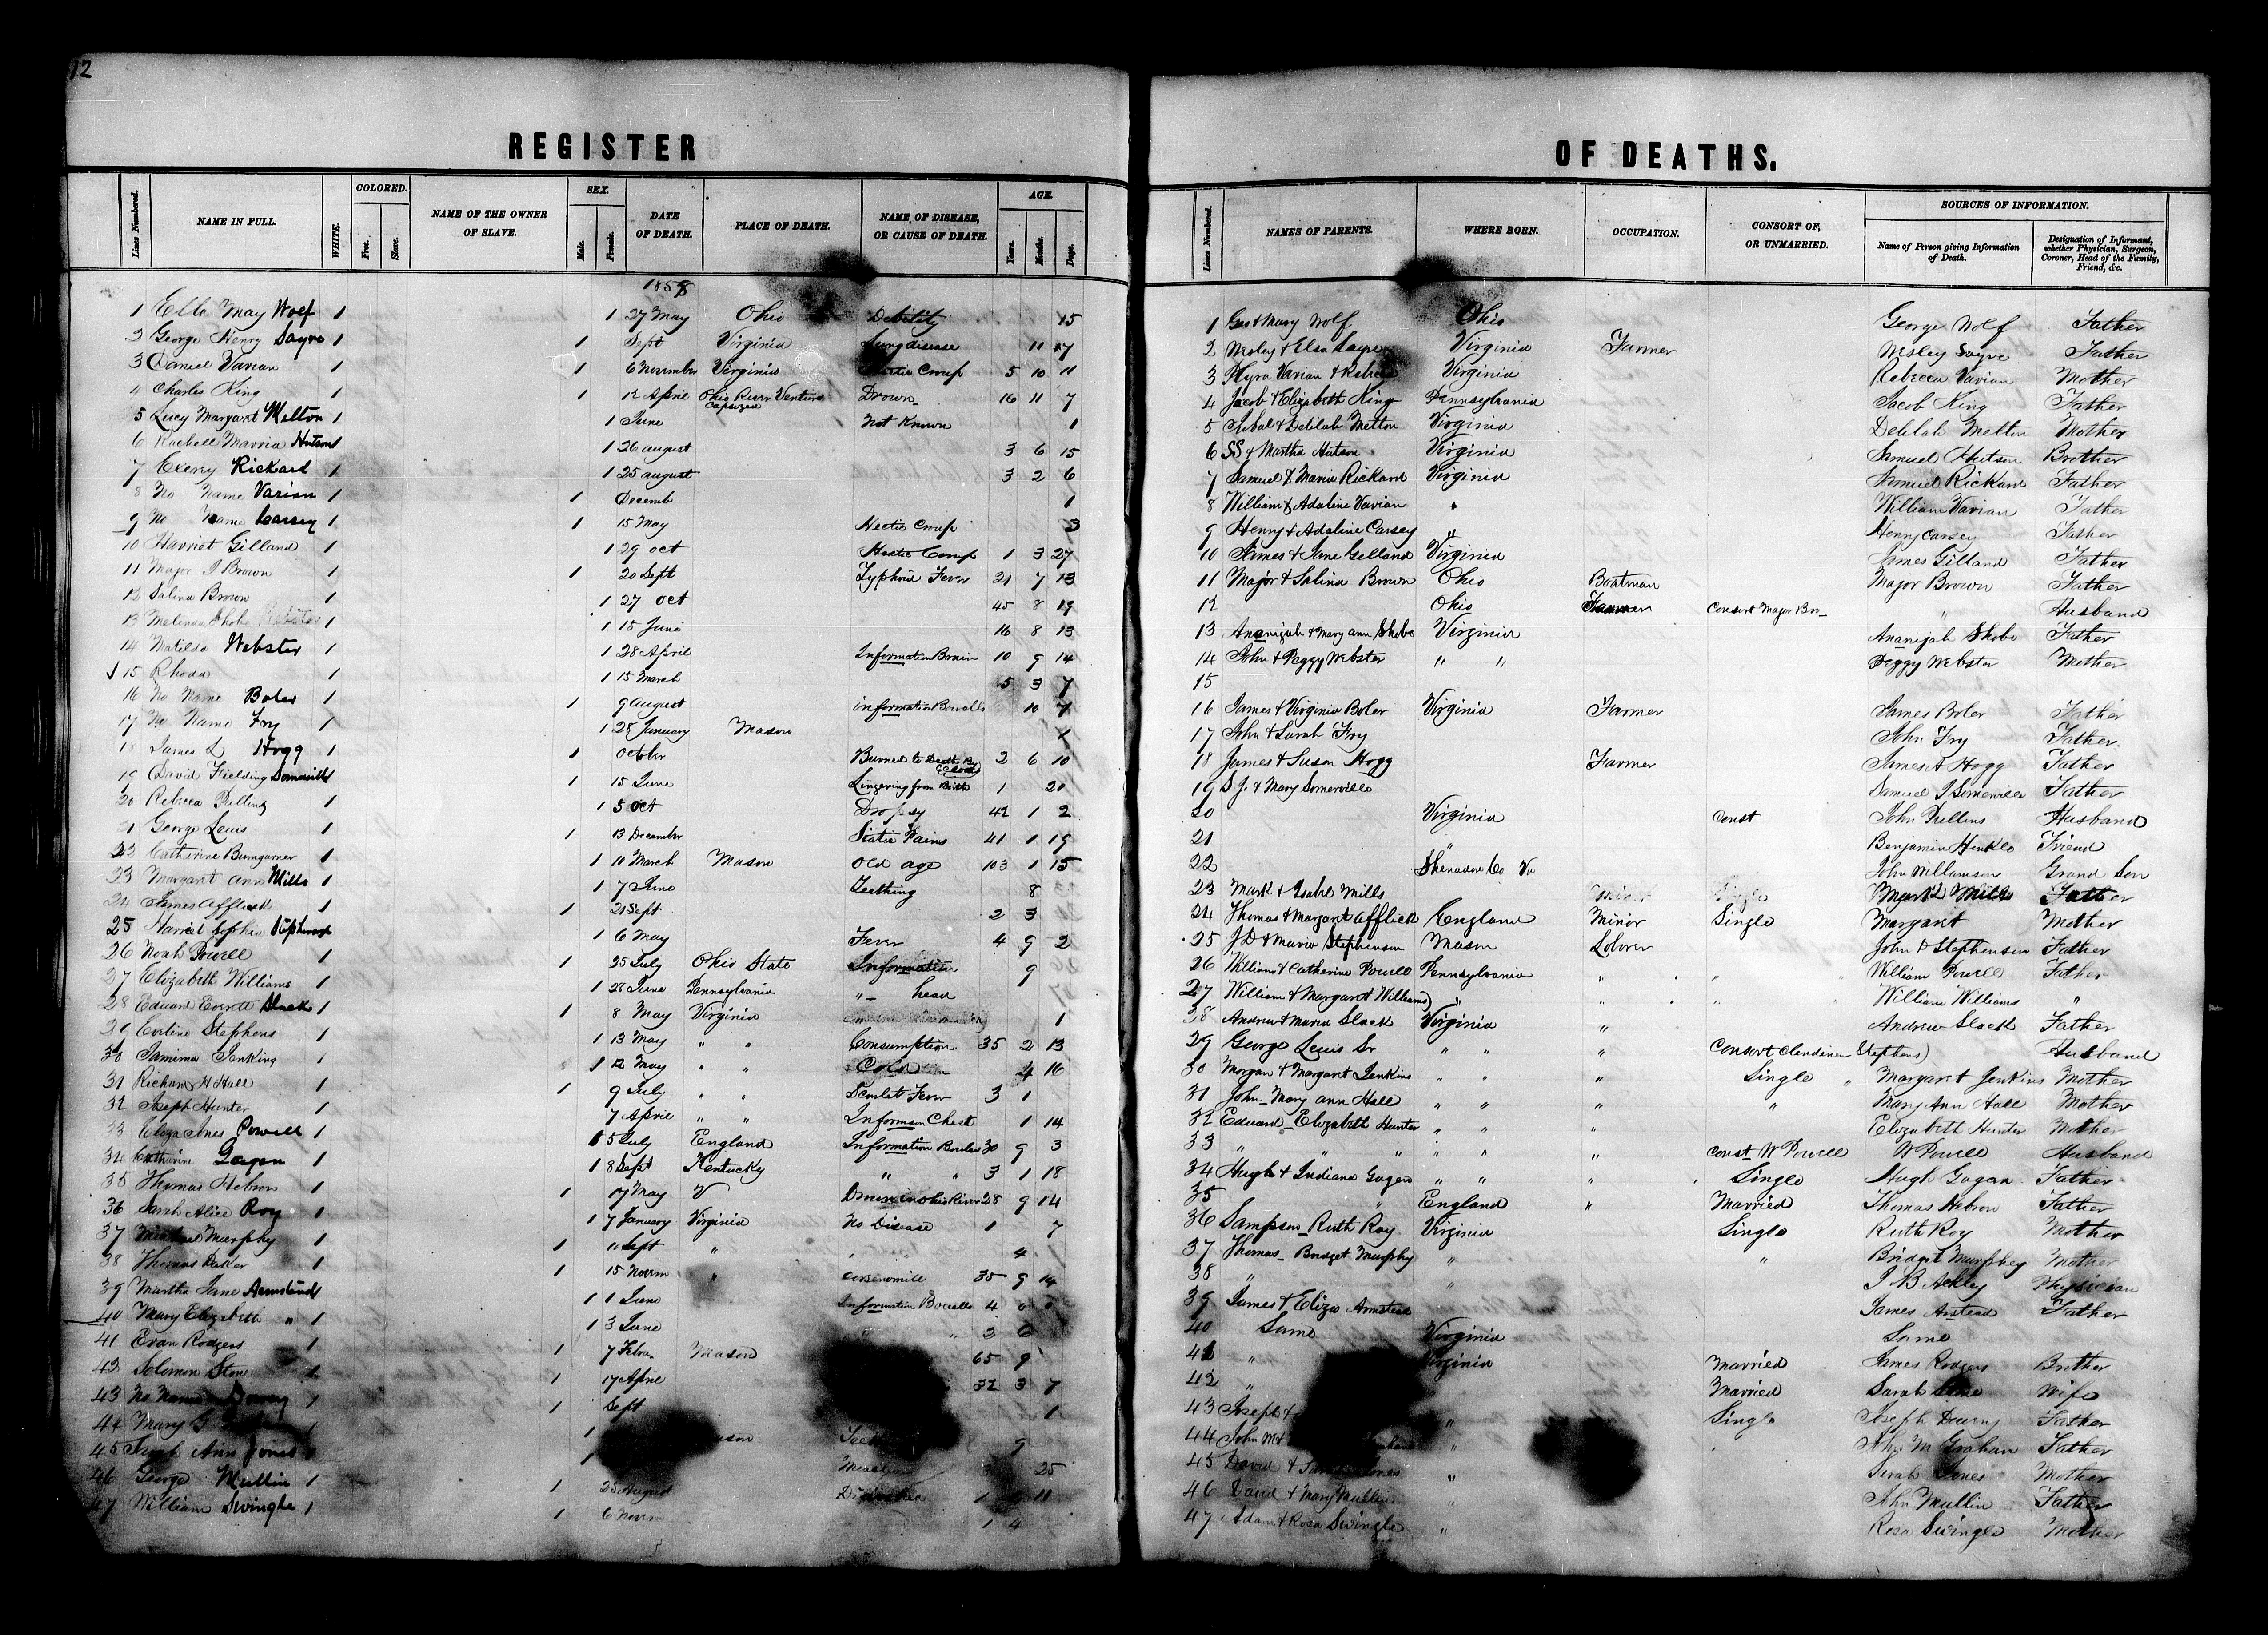 12
REGISTER OF DEATHS.
Lines Numbered. NAME IN FULL. WHITE. COLORED. Free. Slave. NAME OF THE OWNER OF SLAVE. SEX. Male. Female. DATE OF DEATH. PLACE OF DEATH. NAME OF DISEASE, OR CAUSE OF DEATH. AGE. Years. Months. Days. Lines Numbered. NAMES OF PARENTS. WHERE BORN. OCCUPATION. CONSORT OF, OR UNMARRIED. SOURCES OF INFORMATION. Name of Person giving Information of Death. Designation of Informant, whether Physician, Surgeon, Coroner, Head of the Family, Friend, &c.
1858
1 Ella May Wolf 1 1 27 May Ohio Debility 15 1 Geo & Mary Wolf Ohio George Wolf Father
2 George Henry Sayre 1 1 Sept Virginia Lung disease 11 7 2 Wesley & Elsa Sayre Virginia Farmer Wesley Sayre Father
3 Daniel Varian 1 1 6 November Virginia Croup 5 10 11 3 Varian & Virginia Rebecca Varian Mother
4 Charles King 1 1 12 April Ohio River Venture Capsized Drown 16 11 7 4 Jacob & Elizabeth King Pennsylvania Jacob King Father
5 Lucy Margaret Melton 1 1 June Not Known 1 5 & Delilah Melton Virginia Delilah Melton Mother
6 Rachell Marria Hutson 1 1 26 august 3 6 15 6 SS & Martha Hutson Virginia Samuel Hutson Brother
7 Exeny Rickard 1 1 25 august 3 2 6 7 Samuel & Maria Rickard Virginia Samuel Rickard Father
8 No Name Varian 1 1 Decemb 1 8 William & Adaline Varian " William Varian Father
9 No Name Carsey 1 1 15 May Hectic Croup 3 9 Henry & Adaline Carsey " Henry Carsey Father
10 Harriet Gilland 1 1 29 oct Croup 1 3 27 10 James & Jane Gilland Virginia James Gilland Father
11 Major Brown 1 1 20 Sept Typhoid Fever 21 7 13 11 Major & Salina Brown Ohio Boatman Major Brown Father
12 Salina Brown 1 1 27 oct 45 8 19 12 Ohio Farmer Consort Major Bro " Husband
13 Melinda Shobe 1 1 15 June 16 8 13 13 Ananijah & Mary ann Shobe Virginia Ananijah Shobe Father
14 Matilda Webster 1 1 28 April Information Brain 10 9 14 14 John & Peggy Webster " " Peggy Webster Mother
15 Rhoda 1 1 15 March 5 3 7 15
16 No Name Boler 1 1 9 august information Bowells 10 7 16 James & Virginia Boler Virginia Farmer James Boler Father
17 No Name Fry 1 1 28 January Mason 1 17 John & Sarah Fry John Fry Father
18 James L Hogg 1 1 October Burned to Death By 2 6 10 18 James & Susan Hogg Farmer James A Hogg Father
19 David Fielding Somerville 1 15 June Lingering from Birth 1 20 19 S J & Mary Somerville Samuel J Somerville Father
20 Rebecca 1 1 5 Oct Dropsy 42 1 2 20 Virginia Const John Husband
21 George Lewis 1 1 13 December Pains 41 1 19 21 " Benjamin Hinkle Friend
22 Catherine Bumgarner 1 1 10 March Mason Old age 103 1 15 22 Shenadore Co Va John Williamson Grand Son
23 Margaret ann Mills 1 1 7 June Teething 8 23 Mark & Isabel Mills Single Mark Mills Father
24 James Afflick 1 1 21 Sept 2 3 24 Thomas & Margaret Afflick England Minor Single Margaret Mother
25 Harriet Stephenson 1 6 May Fever 4 9 2 25 J D & Maria Stephenson Mason John D Stephenson Father
26 Noah Powell 1 1 25 July Ohio State Information 9 26 William & Catherine Powell Pennsylvania " " William Powell Father
27 Elizabeth Williams 1 1 28 June Pennsylvania " head 27 William & Margaret Williams " " " William Williams "
28 Edward Everett Slack 1 1 8 May Virginia 1 28 Andrew & Maria Slack Virginia " Andrew Slack Father
29 Eveline Stephens 1 1 13 May " " Consumption 35 2 13 29 George Lewis Sr " " " Consort Clendinen Stephens Husband
30 Jamima Jenkins 1 1 12 May " " Cold 4 16 30 Morgan & Margaret Jenkins " " " Single Margaret Jenkins Mother
31 Richard H Hall 1 1 9 July " " Scarlet Fever 3 1 31 John Mary ann Hall " " " " Mary Ann Hall Mother
32 Joseph Hunter 1 7 April " " Chest 1 14 32 Eduard Elizabeth Hunter " " " Elizabeth Hunter Mother
33 Eliza Jones Powell 1 1 5 July England Information 30 9 3 33 " " " " " " const W Powell W Powell Husband
34 Catharine Gagen 1 1 8 Sept Kentucky " " 3 1 18 34 Hugh & Indiana Gagen " " " Single Hugh Gagan Father
35 Thomas Hebron 1 1 17 May V Drown in ohio River 28 9 14 35 " England " Married Thomas Hebron Father
36 Sarah Alice Roy 1 1 7 January Virginia No Disease 1 7 36 Sampson Ruth Roy Virginia Single Ruth Roy Mother
37 Michael Murphy 1 1 11 Sept " 4 37 Thomas Bridget Murphy " " Bridget Murphey Mother
38 Thomas 1 1 15 Novem " 35 9 14 38 " " J B Ackley Physician
39 Martha Jane 1 1 June Information Bowells 4 0 0 39 James & Eliza Armstead James Father
40 Mary Elizabeth " 1 1 3 June " 40 Same Virginia Same
41 Evan Rodgers 1 1 7 Febru Mason 65 9 41 " Virginia Married James Rodgers Brother
42 Solomon Stone 1 1 17 April 32 3 7 42 " Married Sarah Wife
43 No Name 1 1 Sept 1 43 Joseph & " Single Joseph Father
44 Mary G 1 9 44 John M & " John M Graham Father
45 Sarah Ann Jones 1 25 45 David & Sarah Jones " Sarah Jones Mother
46 George Mullin 1 1 25 August 1 11 46 David & Mary Mullin " John Mullin Father
47 William Swingle 1 1 6 Novem 1 4 47 Adam & Rosa Swingle " Rosa Swingle Mother